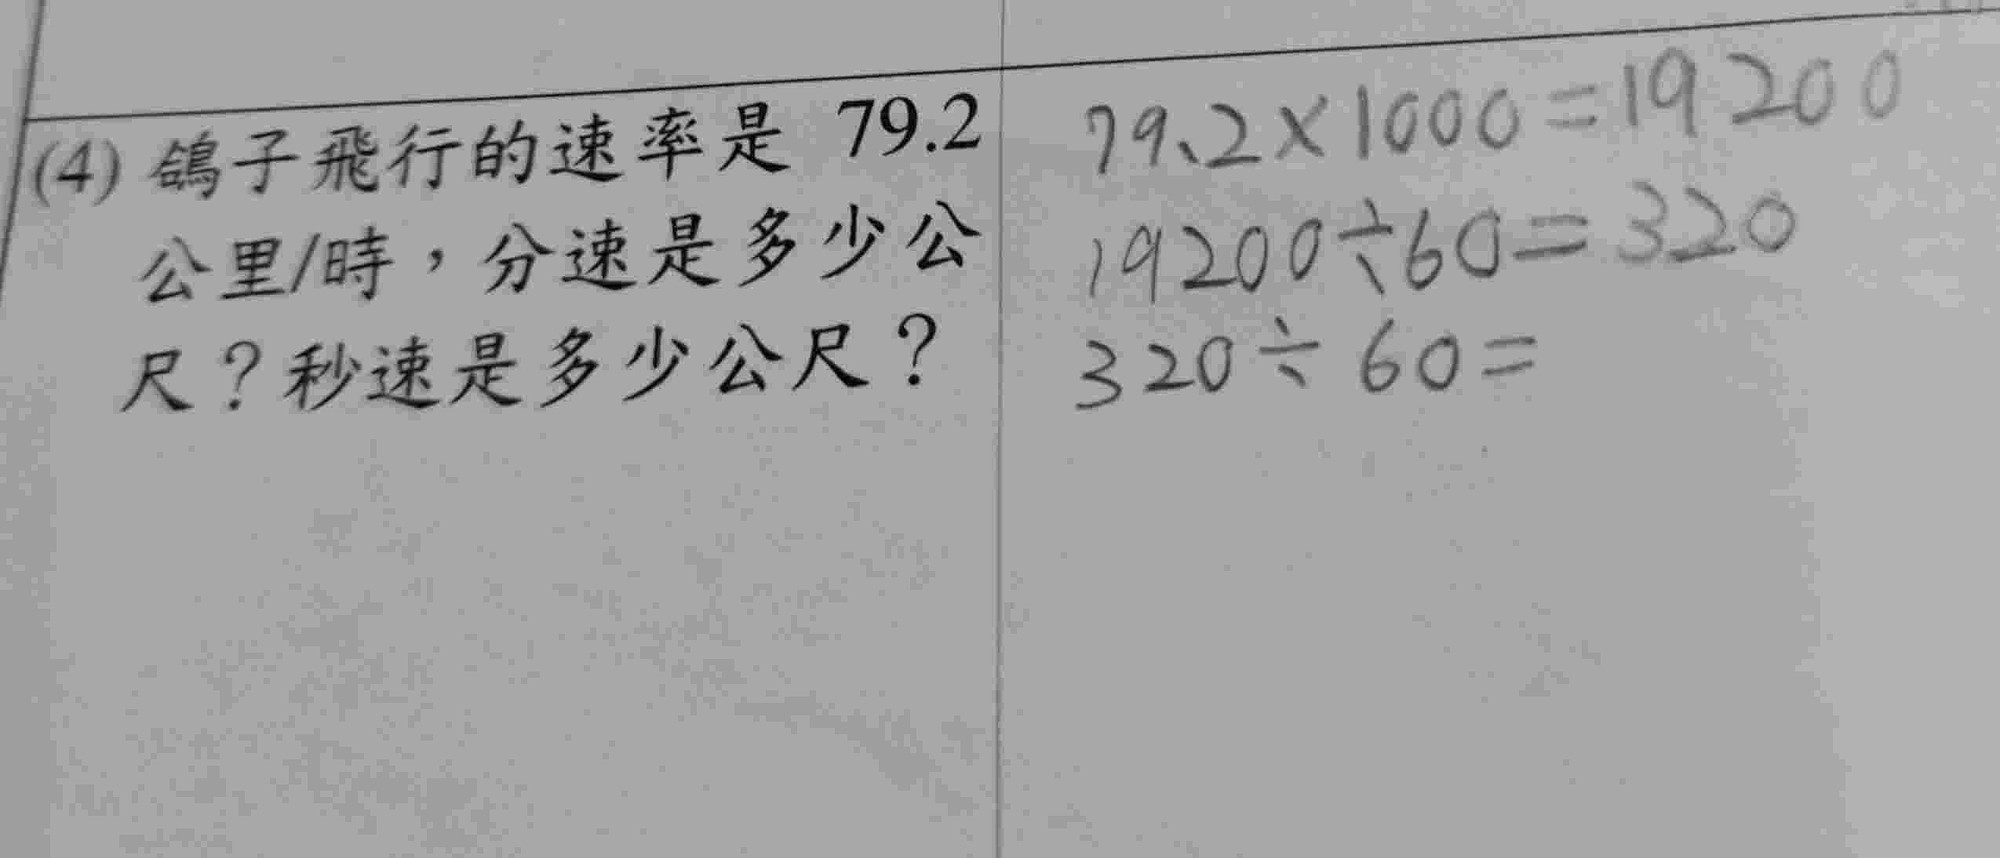 (4) 鴿子飛行的速率是 79.2
公里/時，分速是多少公
尺？秒速是多少公尺？
79.2×1000=19200
19200÷60=320
320÷60=